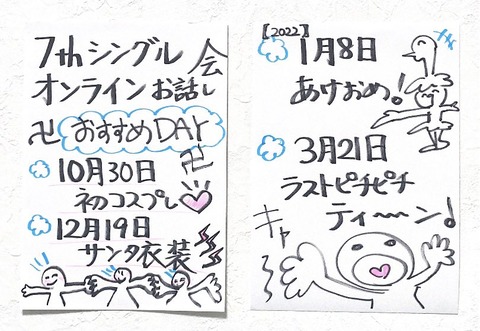 7thシングル
オンラインお話し会
卍 おすすめDAY 卍
10月30日
ネコのコスプレ
12月19日
サンタ衣装
【2022】
1月8日
あけおめ!
3月21日
ラストピチピチ
ティ〜〜ン!
キャー